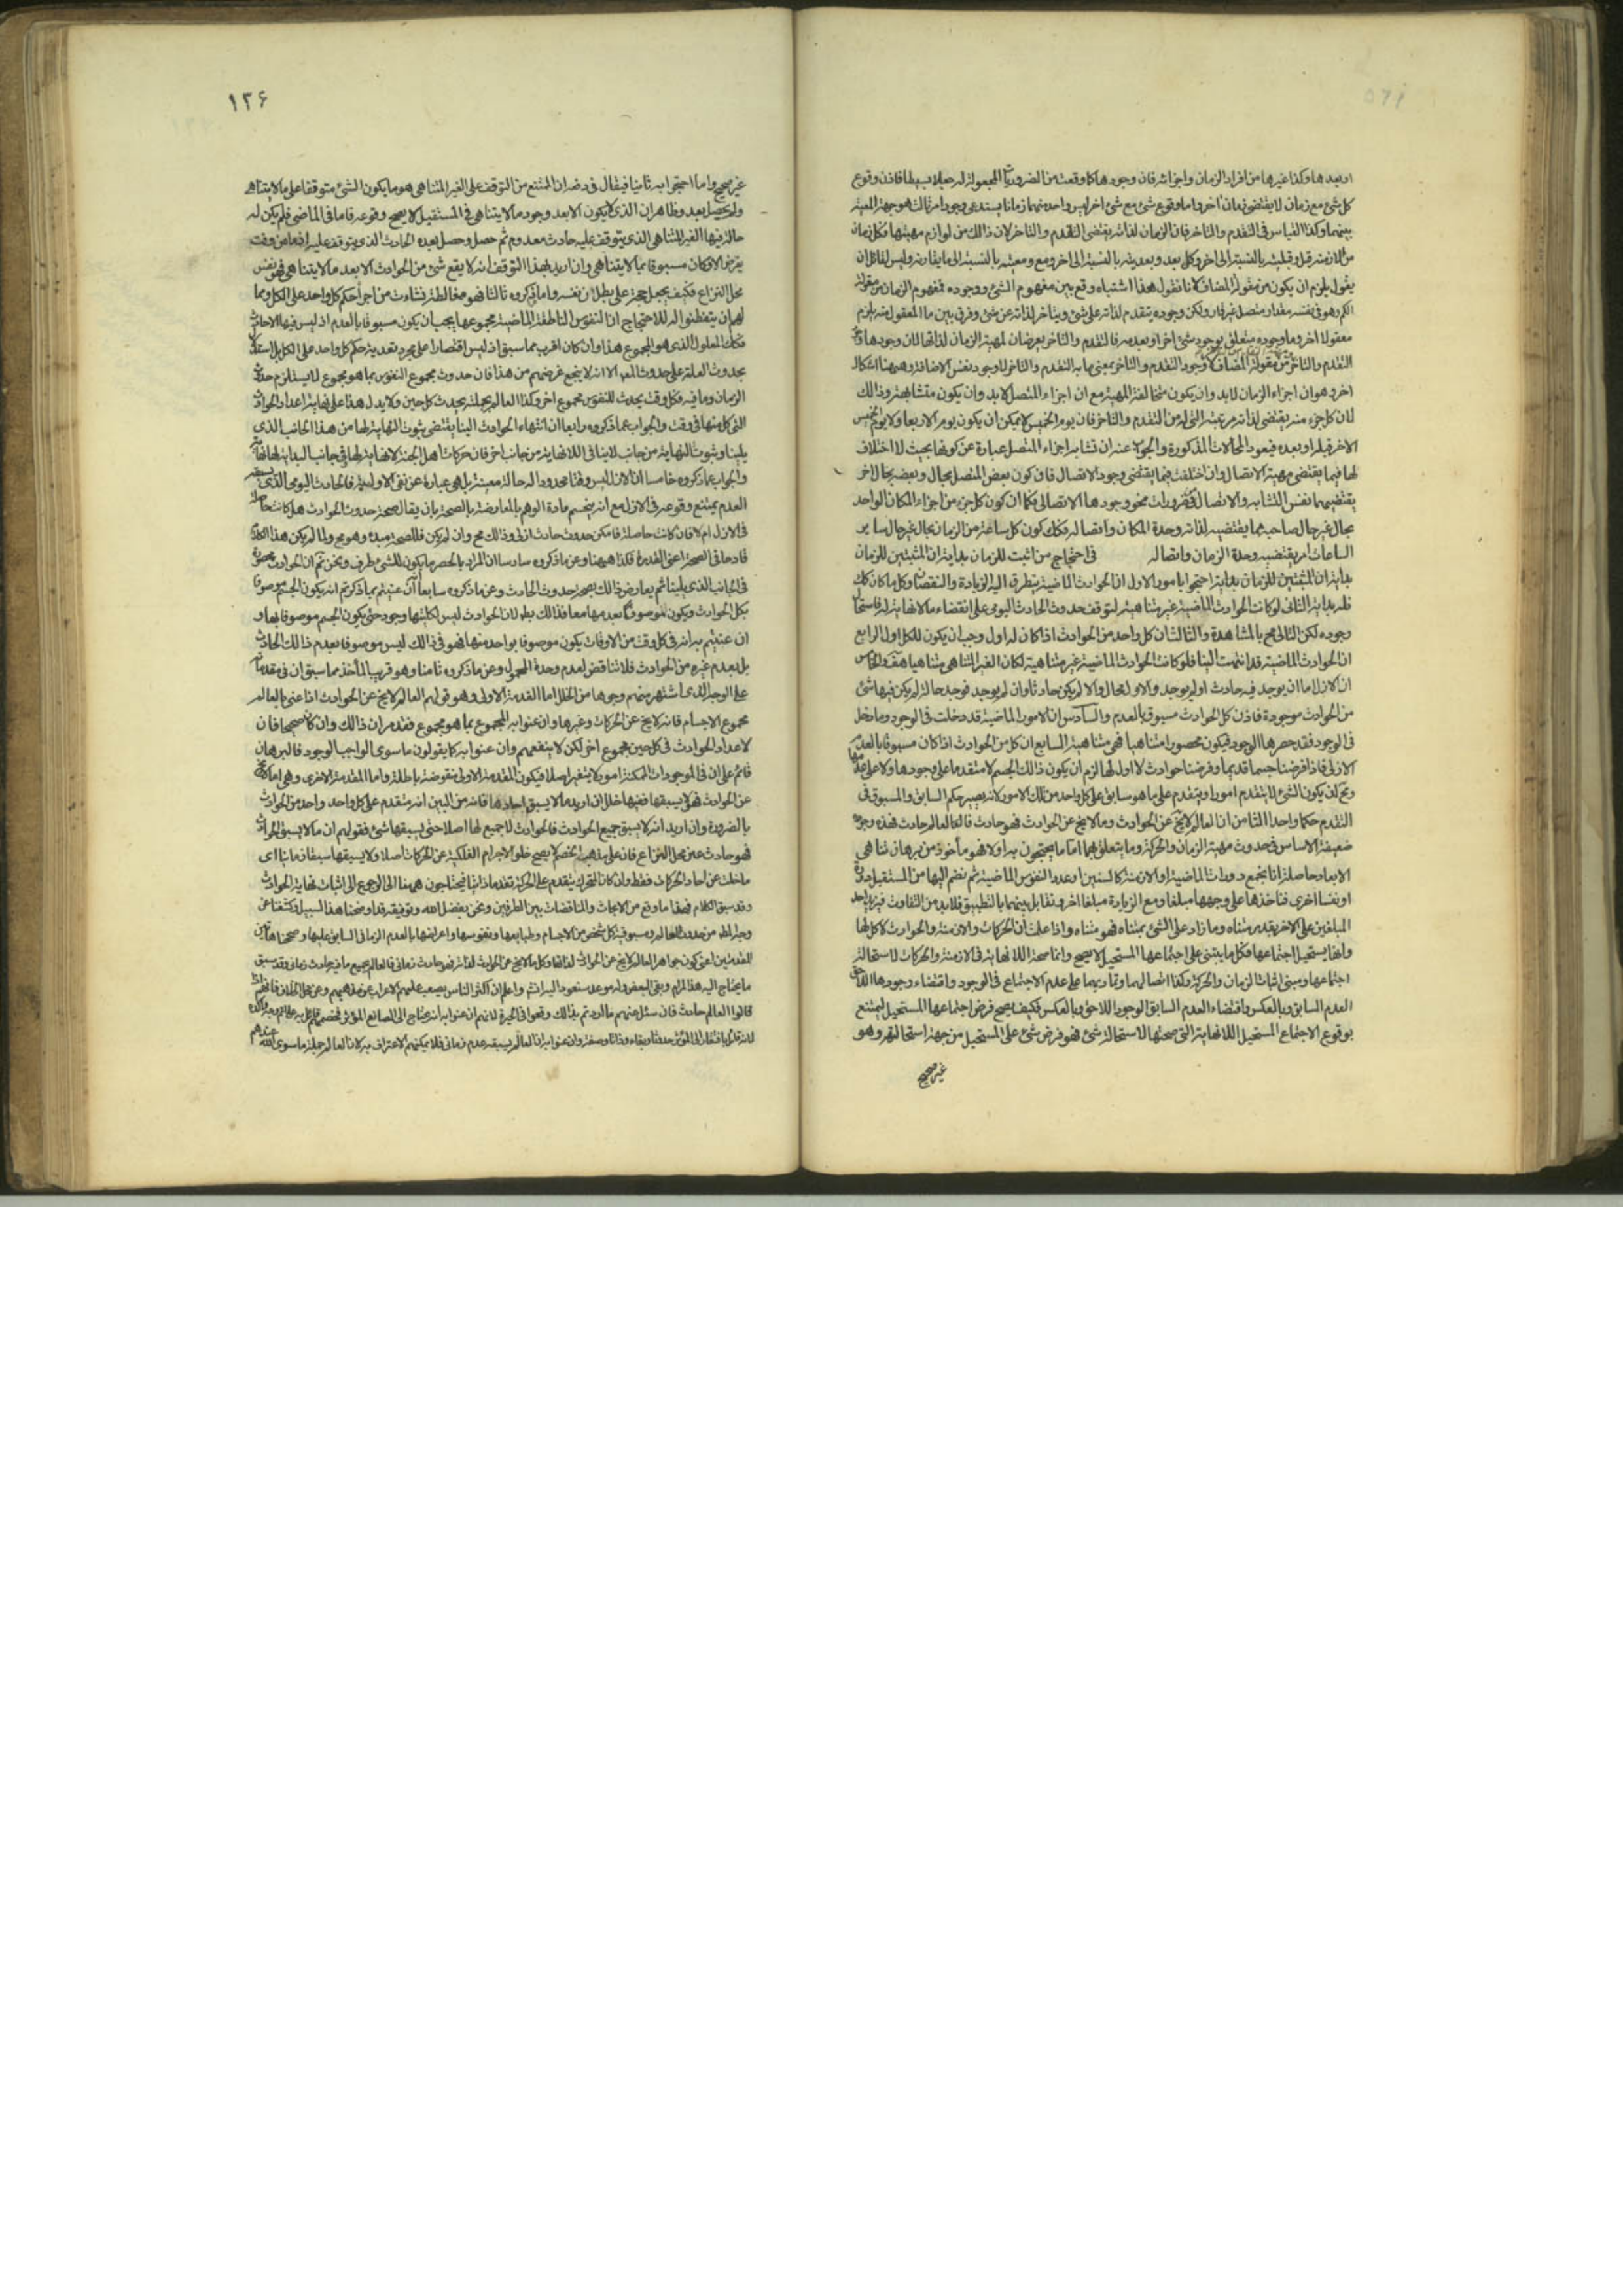 او بعدها وكذا غيرها من افراد الزمان واجزائه فان وجودها كما وقعت من الضروريات المجعولة له جعلا بسيطا فاذن وقوع
كل شئ مع زمان لا يقتضى زمانا اخر واما وقوع شئ مع شئ اخر ليس واحد منهما زمانا يستدعى وجود امر ثالث هو جهة المعية
بينهما وكذا القياس فى التقدم والتاخر فان الزمان لذاته يقتضى التقدم والتاخر لان ذالك من لوازم مهيتها فكل زمان
من الازمنة قبل وقبليته بالنسبة الى اخر وكل بعد وبعديته بالنسبة الى اخر ومع ومعيته بالنسبة الى ما يقارنه وليس لقائل ان
يقول يلزم ان يكون من مقولة المضاف لانا نقول هذا اشتباه وقع بين مفهوم الشئ ووجوده فمفهوم الزمان من مقولة
الكم وهو فى نفسه مقدار متصل غير قار ولكن وجوده يتقدم لذاته على شئ ويتاخر لذاته عن شئ وفرق بين ما المعقول منه يلزم
معقولا اخر وما وجوده متعلق بوجود شئ اخر او بعدمه فالتقدم والتاخر يعرضان لمهية الزمان لذاتها لان وجودها
التقدم والتاخر من مقولة المضاف لا وجود التقدم والتاخر بمعنى ما به التقدم والتاخر لوجود نفس الاضافة وههنا اشكال
اخر وهو ان اجزاء الزمان لابد وان يكون متخالفة المهية مع ان اجزاء المتصل لابد وان يكون متشابهة وذالك
لان كل جزء منه يقتضى لذاته مرتبته التى له من التقدم والتاخر فان يوم الخميس لا يمكن ان يكون يوم الاربعا ولا يوم الخميس
الاخر قبله او بعده فيعود المحالات المذكورة والجواب عنه ان تشابه اجزاء المتصل عبارة عن كونها بحيث لا اختلاف
لها فيما يقتضى مهية الاتصال وان اختلفت فيما يقتضى وجود الاتصال فان كون بعض المتصل بحال وبعضه بحال اخر
يقتضيهما نفس التشابه والاتصال فهو من ضرورات نحو وجودها الاتصالى فكما ان كون كل جزء من اجزاء المكان الواحد
بحال غير حال صاحبه مما يقتضيه لذاته وحدة المكان واتصاله فكك كون كل ساعة من الزمان بحال غير حال ساير
الساعات امر يقتضيه وحدة الزمان واتصاله فى احتجاج من اثبت للزمان بداية ان المثبتين للزمان
بداية ان المثبتين للزمان بداية احتجوا بامور الاول ان الحوادث الماضية يتطرق اليه الزيادة والنقصان وكل ما كان كك
فله بداية الثانى لو كانت الحوادث الماضية غير متناهية لتوقف حدوث الحادث اليومى على انقضاء ما لا نهاية له فاستحال
وجوده لكن التالى مح بالمشاهدة والثالث ان كل واحد من الحوادث اذا كان له اول وجب ان يكون للكل اول الرابع
ان الحوادث الماضية قد انتهت الينا فلو كانت الحوادث الماضية غير متناهية لكان الغير المتناهى متناهيا هف والخامس
ان الازل اما ان يوجد فيه حادث او لم يوجد والاول محال والا لم يكن حادثا وان لم يوجد فوجد حالة لم يكن فيها شئ
من الحوادث موجودة فاذن كل الحوادث مسبوق بالعدم والسادس ان الامور الماضية قد دخلت فى الوجود وما دخل
فى الوجود فقد حصرها الوجود فيكون محصورا متناهيا فهى متناهية السابع ان كل من الحوادث اذا كان مسبوقا بالعدم
الازلى فاذا فرضنا جسما قديما وفرضنا حوادث لا اول لها لزم ان يكون ذالك الجسم لا متقدما على وجودها ولا على عدمها
ومح ان يكون الشئ لا يتقدم امورا ويتقدم على ما هو سابق على كل واحد من تلك الامور لانه يصير حكم السابق والمسبوق فى
التقدم حكما واحدا الثامن ان العالم لا يخ عن الحوادث وما لا يخ عن الحوادث فهو حادث فالعالم حادث فهذه وجوه
ضعيفة الاساس فى حدوث مهية الزمان والحركة وما يتعلق بهما اما ما يحتجون به اولا فهو مأخوذ من برهان تناهى
الابعاد حاصله انا نجمع دورات الماضية او الازمنة كالسنين او عدد النفوس الماضية ثم نضم اليها من المستقبل دورة
او نفسا اخرى فناخذها على وجهها مبلغا ومع الزيادة مبلغا اخر ونقابل بينهما بالتطبيق فلابد من التفاوت فيزيد احد
المبلغين على الاخر بقدر متناه وما زاد على الشئ بمتناه فهو متناه واذا علمت ان الحركات والازمنة والحوادث لا كل لها
وانها يستحيل اجتماعها فكل ما يبتنى على اجتماعها المستحيل لا يصح وانما صحة اللانهاية فى الازمنة والحركات لاستحالة
اجتماعها ومبنى اثبات الزمان والحركة وكذا اتصالهما وتماديهما على عدم الاجتماع فى الوجود واقتضاء وجودها اللاحق
العدم السابق وبالعكس واقتضاء العدم السابق الوجود اللاحق وبالعكس فكيف يصح فرض اجتماعها المستحيل ليمتنع
بوقوع الاجتماع المستحيل اللانهاية التى صحتها لاستحالة شئ فهو فرض شئ على المستحيل من جهة استحالته وهو
غير صحيح
١٣۶
غير صحيح واما احتجوا به ثانيا فيقال فى دفعه ان الممتنع من التوقف على الغير المتناهى هو ما يكون الشئ متوقفا على ما لا يتناهى
ولم يحصل بعد وظاهر ان الذى لا يكون الا بعد وجود ما لا يتناهى فى المستقبل لا يصح وقوعه فاما فى الماضى فلم يكن له
حالة فيها الغير المتناهى الذى يتوقف عليه حادث معدوم ثم حصل وحصل بعده الحادث الذى يتوقف عليه اذ ما من وقت
يفرض الا وكان مسبوقا بما لا يتناهى وان اريد بهذا التوقف انه لا يقع شئ من الحوادث الا بعد ما لا يتناهى فهو نفس
محل النزاع فكيف يجعل حجة على بطلان نفسه واما ما ذكروه ثالثا فهو مغالطة نشاءت من اجراء حكم كل واحد على الكل ومما
لهم ان يتفطنوا له للاحتجاج ان النفوس الناطقة الماضية مجموعها يجب ان يكون مسبوقا بالعدم اذ ليس فيها الا حادث
فكك المعلول الذى هو المجموع هذا وان كان اقرب مما سبق اذ ليس اقتصارا على مجرد تعدية حكم كل واحد على الكل بل استدلال
بحدوث العلة على حدوث المعلول الا انه لا ينجع غرضهم من هذا فان حدوث مجموع النفوس بما هو مجموع لا يستلزم حدوث
الزمان وما فيه فكل وقت يحدث للنفوس مجموع اخر وكذا العالم بجملته يحدث كل حين ولا يدل هذا على نهاية اعداد الحوادث
التى كل منها فى وقت والجواب عما ذكروه رابعا ان انتهاء الحوادث الينا يقتضى ثبوت النهاية لها من هذا الجانب الذى
يلينا وثبوت النهاية من جانب لا ينافى اللانهاية من جانب اخر فان حركات اهل الجنة لا نهاية لها فى جانب البداية لها نهاية
والجواب عما ذكروه خامسا ان الازل ليس وقتا محدودا له حالة معينة بل هى عبارة عن نفى الاولية فالحادث اليومى الذى يسبقه
العدم يمتنع وقوعه فى الازل مع انه ينحسم مادة الوهم بالمعارضة بالصحة بان يقال صحة حدوث الحوادث هل كانت حاصلة
فى الازل ام لا فان كانت حاصلة فامكن حدوث حادث ازلى وذالك مح وان لم يكن فللصحة مبدء وهو مح ولما لم يكن هذا الكلام
قادحا فى الصحة اعنى القدرة فكذا ههنا وعن ما ذكروه سادسا ان المراد بالحصر ما يكون للشئ طرف ونحن نعلم ان الحوادث محصورة
فى الجانب الذى يلينا ثم يعارض ذالك بصحة حدوث الحادث وعن ما ذكروه سابعا ان عنيتم بما ذكرتم انه يكون الجسم موصوفا
بكل الحوادث ويكون موصوفا بعدمها معا فذالك بط لان الحوادث ليس لكليتها وجود حتى يكون الجسم موصوفا بها و
ان عنيتم به انه فى كل وقت من الاوقات يكون موصوفا بواحد منها فهو فى ذالك ليس موصوفا بعدم ذالك الحادث
بل بعدم غيره من الحوادث فلا تناقض لعدم وحدة المحمول وعن ما ذكروه ثامنا وهو قريب المأخذ مما سبق ان فى مقدماته
على الوجه الذى اشتهر بينهم وجوها من الخلل اما المقدمة الاولى وهو قولهم العالم لا يخ عن الحوادث اذا عنى بالعالم
مجموع الاجسام فانه لا يخ عن الحركات وغيرها وان عنوا به المجموع بما هو مجموع فقد مر ان ذالك وان كان صحيحا فان
لاعداد الحوادث فى كل حين مجموع اخر لكن لا ينفعهم وان عنوا به كما يقولون ما سوى الواجب الوجود فالبرهان
قائم على ان فى الموجودات الممكنة امورا لا يتغير اصلا فيكون المقدمة الاولى منقوضة باطلة واما المقدمة الاخرى وهى ما لا يخ
عن الحوادث فهو لا يسبقها ففيها خلل ان اريد ما لا يسبق احادها فانه من البين انه متقدم على كل واحد واحد من الحوادث
بالضرورة وان اريد انه لا يسبق جميع الحوادث فالحوادث لا جميع لها اصلا حتى يسبقها شئ فقولهم ان ما لا يسبق الحوادث
فهو حادث عين محل النزاع فان على مذهب الخصم لا يصح خلو الاجرام الفلكية عن الحركات اصلا ولا يسبقها سبقا زمانيا اى
ما خلت عن احاد الحركات فقط وان كان المتحرك يتقدم على الحركة تقدما ذاتيا فيحتاجون ههنا الى الرجوع الى اثبات نهاية الحوادث
وقد سبق الكلام فهذا ما وقع من الابحاث والمناقضات بين الطرفين ونحن بفضل الله وتوفيقه قد اوضحنا هذا السبيل وكشفنا عن
وجه المطلوب من حدوث العالم ومسبوقية كل شخص من الاجسام وطبايعها ونفوسها واعراضها بالعدم الزمانى السابق عليها وصححنا هاتين
المقدمتين اعنى كون جواهر العالم لا يخ عن الحوادث لذاتها وكل ما لا يخ عن الحوادث لذاته فهو حادث زمانى فالعالم بجميع ما فيه حادث زمانى وقد سبق
ما يحتاج اليه هذا المرام وبقى البعض وله موعد ستعود اليه انشه واعلم ان اكثر الناس يصعب عليهم الاعراب عن مذهبهم وعن محل الخلاف فانهم اذا
قالوا العالم حادث فان سئل منهم ما اردتم بذالك وقعوا فى الحيرة لانهم ان عنوا به انه محتاج الى الصانع المؤثر فخصمهم قائل به على اتم وجه واكده
لانه قائل بافتقاره الى المؤثر حدوثا وبقاء وذاتا وصفة وان عنوا به ان العالم يسبقه عدم زمانى فلا يمكنهم الاعتراف به لان العالم جملة ما سوى الله عندهم